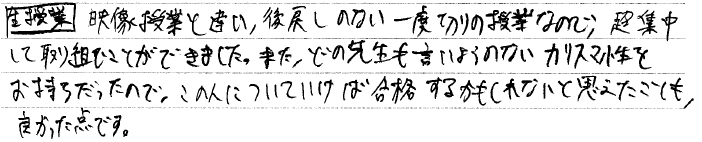 生授業 映像授業と違い、後戻しのない一度てりの授業なので、超集中
して取り組むことができました。また、どの先生も言いようのないカリスマ性を
お持ちだったので、この人についていけば合格するかもしれないと思えたことも、
良かった点です。